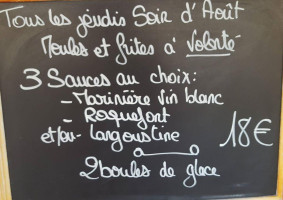 Tous les jeudis Soir d'Août
Moules et frites à volonté
3 Sauces au choix:
- Marinière vin blanc
- Roquefort
et/ou - Langoustine
18€
2 boules de glace